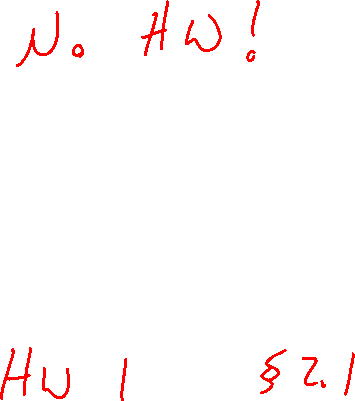 No HW!
HW 1 § 2.1